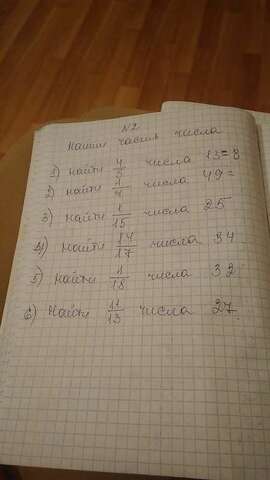 N2
Найти часть числа
1) найти 4/5 числа 15=8
2) найти 1/7 числа 49=
3) найти 1/15 числа 25
4) найти 14/17 числа 34
5) найти 1/18 числа 32
6) найти 11/13 числа 27